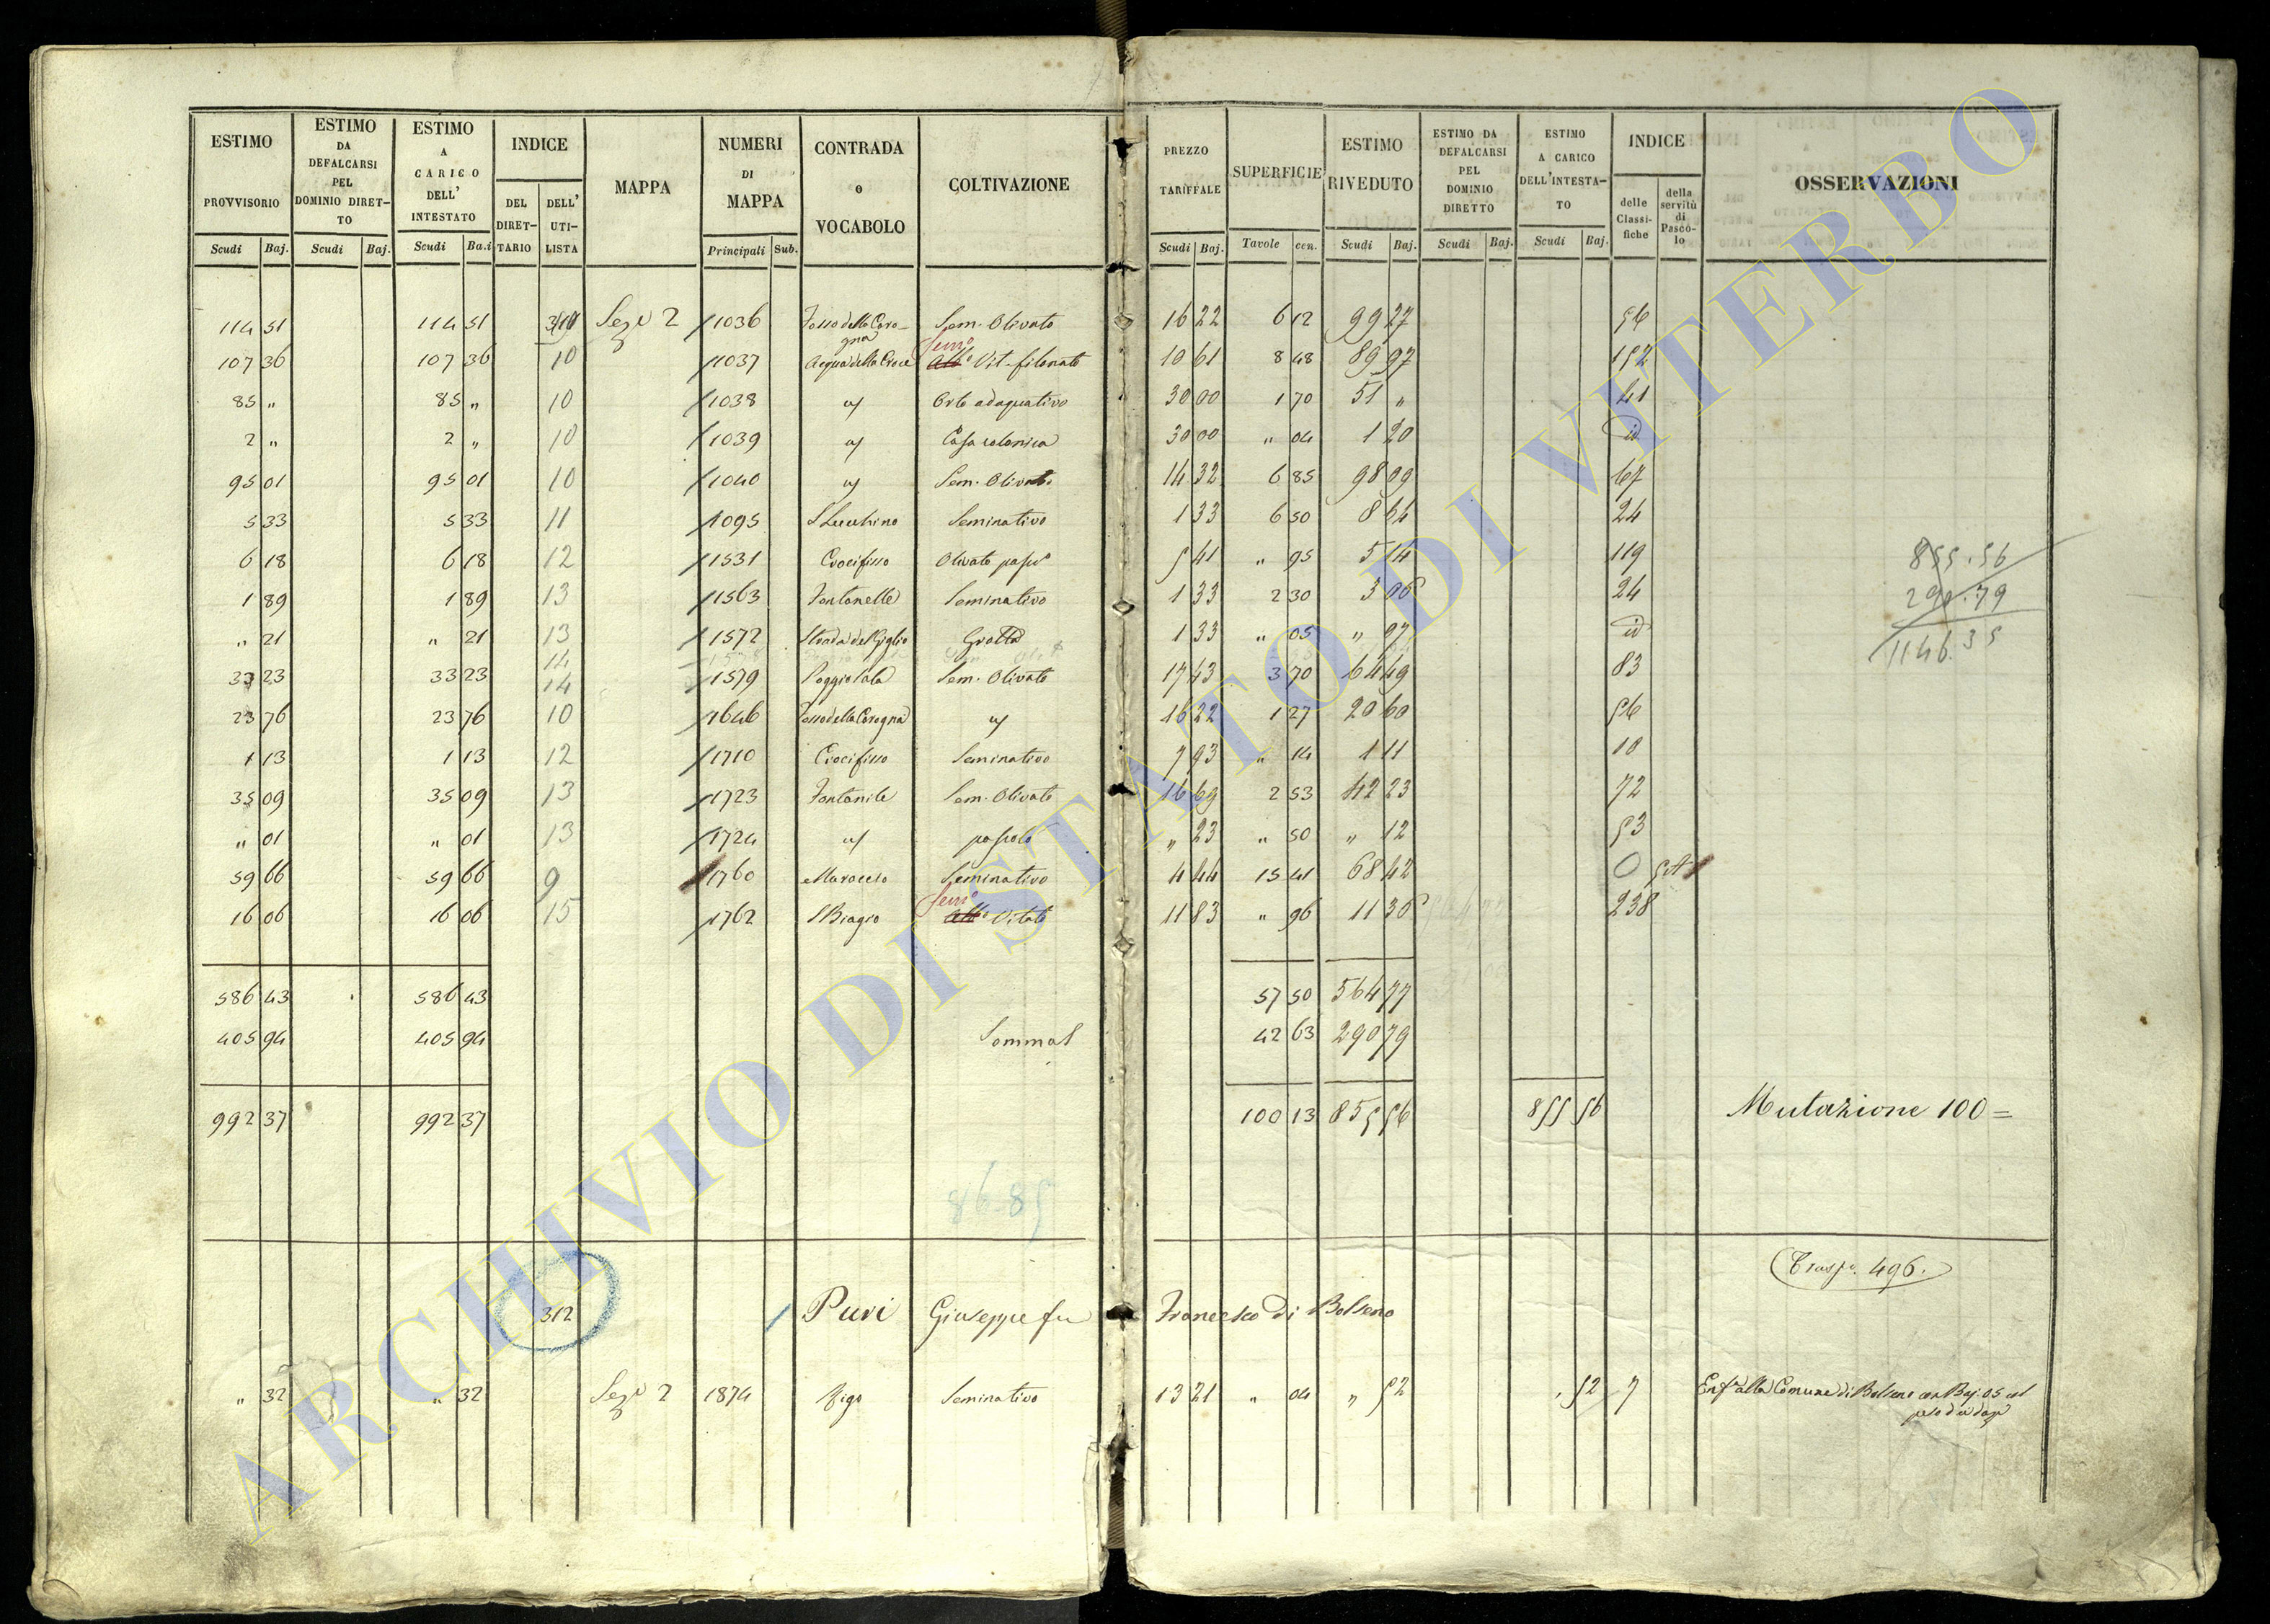 ESTIMO PROVVISORIO Scudi Baj. ESTIMO DA DEFALCARSI PEL DOMINIO DIRETTO Scudi Baj. ESTIMO A CARICO DELL' INTESTATO Scudi Ba.i INDICE DEL DIRETTARIO DELL' UTILISTA MAPPA NUMERI DI MAPPA Principali Sub. CONTRADA o VOCABOLO COLTIVAZIONE PREZZO TARIFFALE Scudi Baj. SUPERFICIE Tavole cen. ESTIMO RIVEDUTO Scudi Baj. ESTIMO DA DEFALCARSI PEL DOMINIO DIRETTO Scudi Baj. ESTIMO A CARICO DELL'INTESTATO Scudi Baj. INDICE delle Classifiche della servitù di Pascolo OSSERVAZIONI
114 51 114 51 Sez.e 2 1036 Fosso della Carogna Sem. Olivato 16 22 6 12 99 27 56
107 36 107 36 10 1037 Acqua della Croce Vit. filonato 10 61 8 48 89 97 152
85 „ 85 „ 10 1038 Orto adaquativo 30 00 1 70 51 „ 41
2 „ 2 „ 10 1039 Casa colonica 30 00 „ 04 1 20 id
95 01 95 01 10 1040 Sem. Olivato 14 32 6 85 98 09 67
5 33 5 33 11 1095 Seminativo 1 33 6 50 8 64 24
6 18 6 18 12 1531 Crocifisso Olivato pasc.o 5 41 „ 95 5 14 119
1 89 1 89 13 1563 Fontanelle Seminativo 1 33 2 30 3 06 24
„ 21 „ 21 13 1572 Strada del Giglio Grotta 1 33 „ 05 „ 07 id
33 23 33 23 14 1579 Poggio Sala Sem. Olivato 17 43 3 70 64 49 83
23 76 23 76 10 1646 Fosso della Carogna 16 22 1 27 20 60 56
1 13 1 13 12 1710 Crocifisso Seminativo 7 93 „ 14 1 11 10
35 09 35 09 13 1723 Fontanile Sem. Olivato 16 69 2 53 42 23 72
„ 01 „ 01 13 1724 pascolo „ 23 „ 50 „ 12 53
59 66 59 66 9 1760 Maroccio Seminativo 4 44 15 41 68 42 0
16 06 16 06 15 1762 S Biagio Vitato 11 83 „ 96 11 36 238
855.56
290.79
1146.35
586 43 586 43 57 50 564 77
405 94 405 94 42 63 290 79
992 37 992 37 100 13 855 56 855 56 Mutazione 100=
86-85
Trasp.o 496.
312 Puri Giuseppe fu Francesco di Bolsena
„ 32 „ 32 Sez.e 2 1874 Seminativo 13 21 „ 04 „ 52 „ 52 7 Enf.a alla Comune di Bolsena
ARCHIVIO DI STATO DI VITERBO